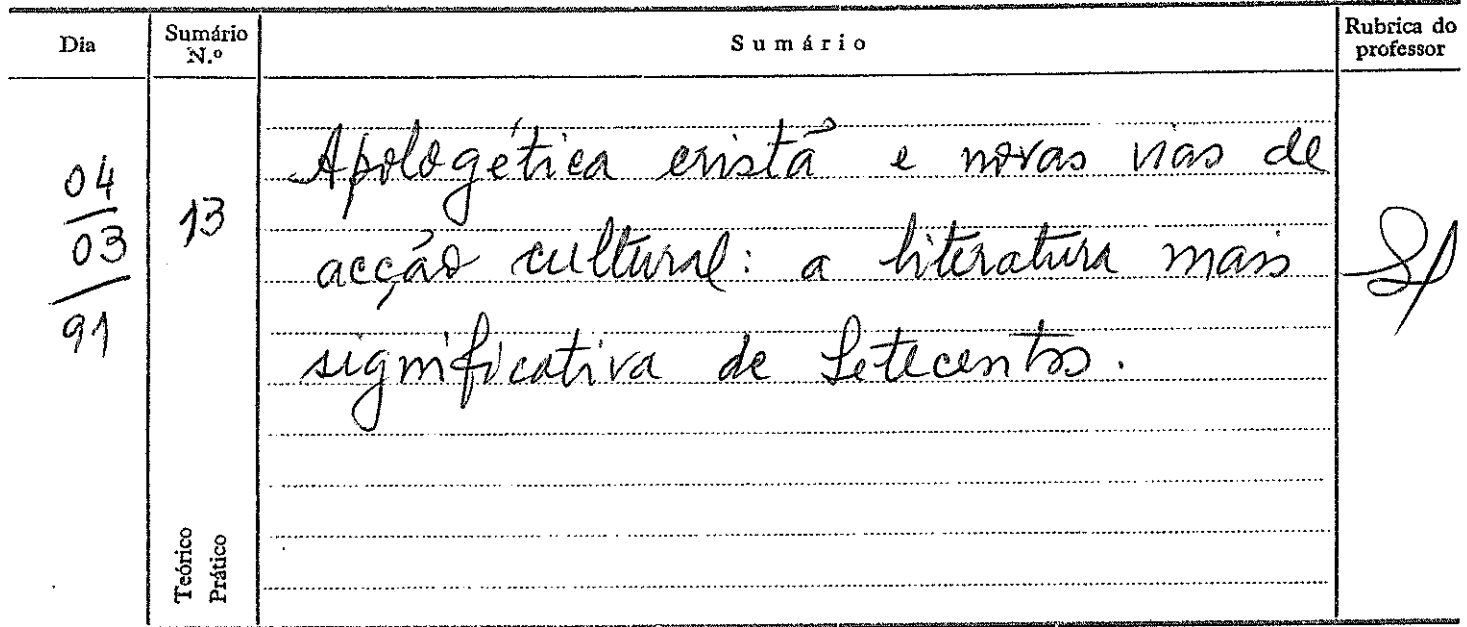 Dia
Sumário
N.º
Sumário
Rubrica do
professor
04
03
91
13
Apologética cristã e novas vias de
acção cultural: a literatura mais
significativa de Setecentos.
Teórico
Prático